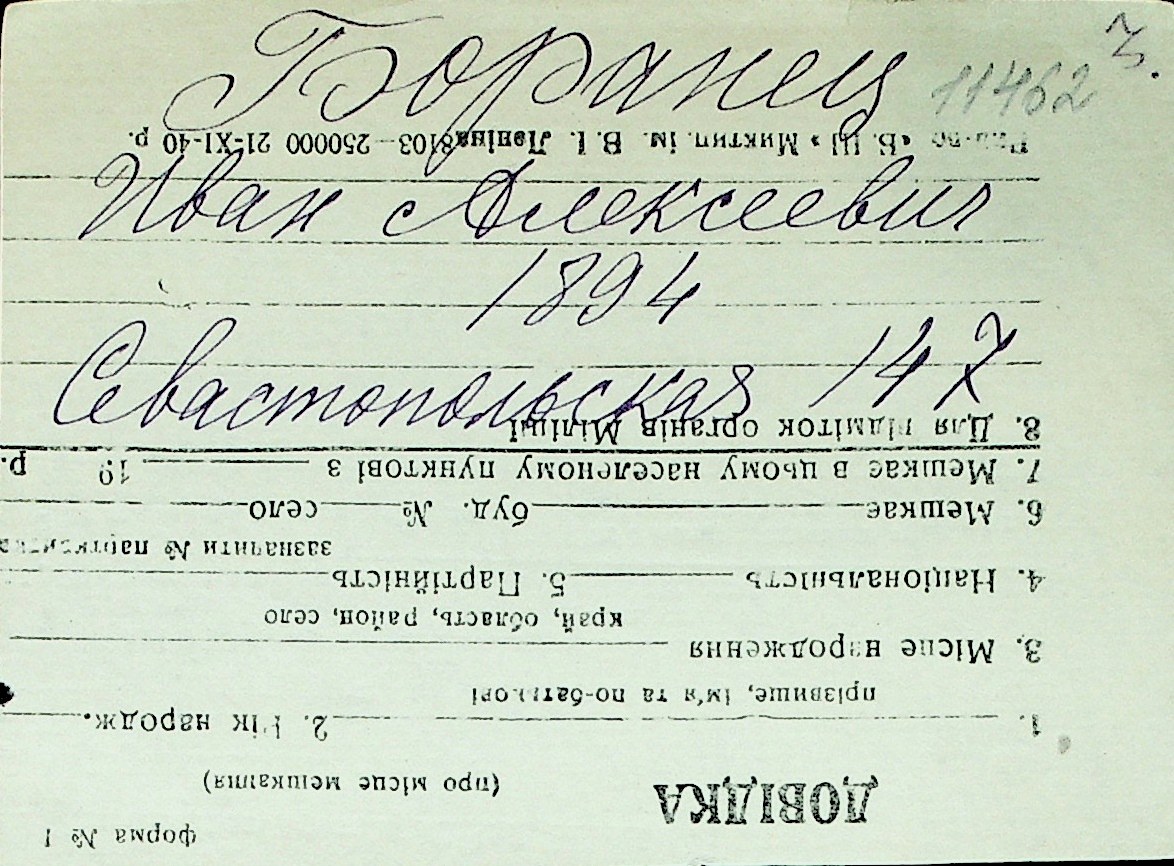 Боранец 11462 3.
Иван Алексеевич
1894
Севастопольская 147
форма № 1
ДОВІДКА (про місце мешкання)
1. 2. Рік народж.
прізвище, ім'я та по-батькові
3. Місце народження
край, область, район, село
4. Національність 5. Партійність
зазначити № партквитка
6. Мешкає буд. № село
7. Мешкає в цьому населеному пункті з 19 р.
8. Для відміток органів Міліції
ім. В. І. Леніна 8103—250000 21-XI-40 р.